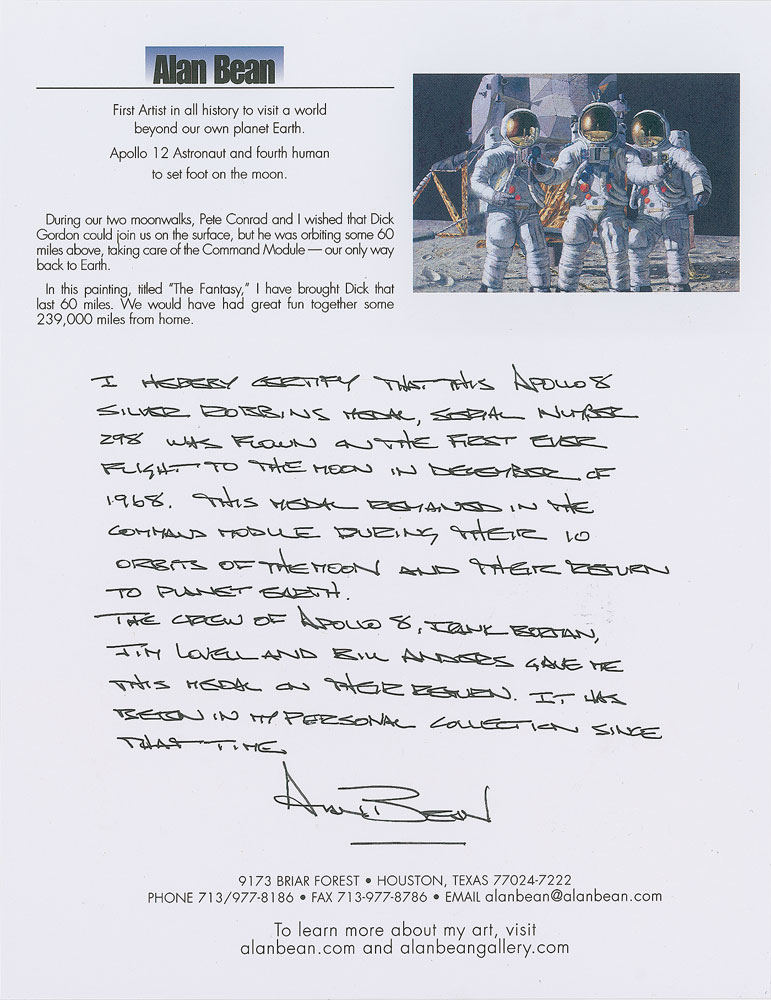 Alan Bean
First Artist in all history to visit a world
beyond our own planet Earth.
Apollo 12 Astronaut and fourth human
to set foot on the moon.
During our two moonwalks, Pete Conrad and I wished that Dick
Gordon could join us on the surface, but he was orbiting some 60
miles above, taking care of the Command Module — our only way
back to Earth.
In this painting, titled "The Fantasy," I have brought Dick that
last 60 miles. We would have had great fun together some
239,000 miles from home.
I HEREBY CERTIFY THAT THIS APOLLO 8
SILVER ROBBINS MEDAL, SERIAL NUMBER
298 WAS FLOWN ON THE FIRST EVER
FLIGHT TO THE MOON IN DECEMBER OF
1968. THIS MEDAL REMAINED IN THE
COMMAND MODULE DURING THEIR 10
ORBITS OF THE MOON AND THEIR RETURN
TO PLANET EARTH.
THE CREW OF APOLLO 8, FRANK BORMAN,
JIM LOVELL AND BILL ANDERS GAVE ME
THIS MEDAL ON THEIR RETURN. IT HAS
BEEN IN MY PERSONAL COLLECTION SINCE
THAT TIME.
Alan Bean
9173 BRIAR FOREST • HOUSTON, TEXAS 77024-7222
PHONE 713/977-8186 • FAX 713-977-8786 • EMAIL alanbean@alanbean.com
To learn more about my art, visit
alanbean.com and alanbeangallery.com